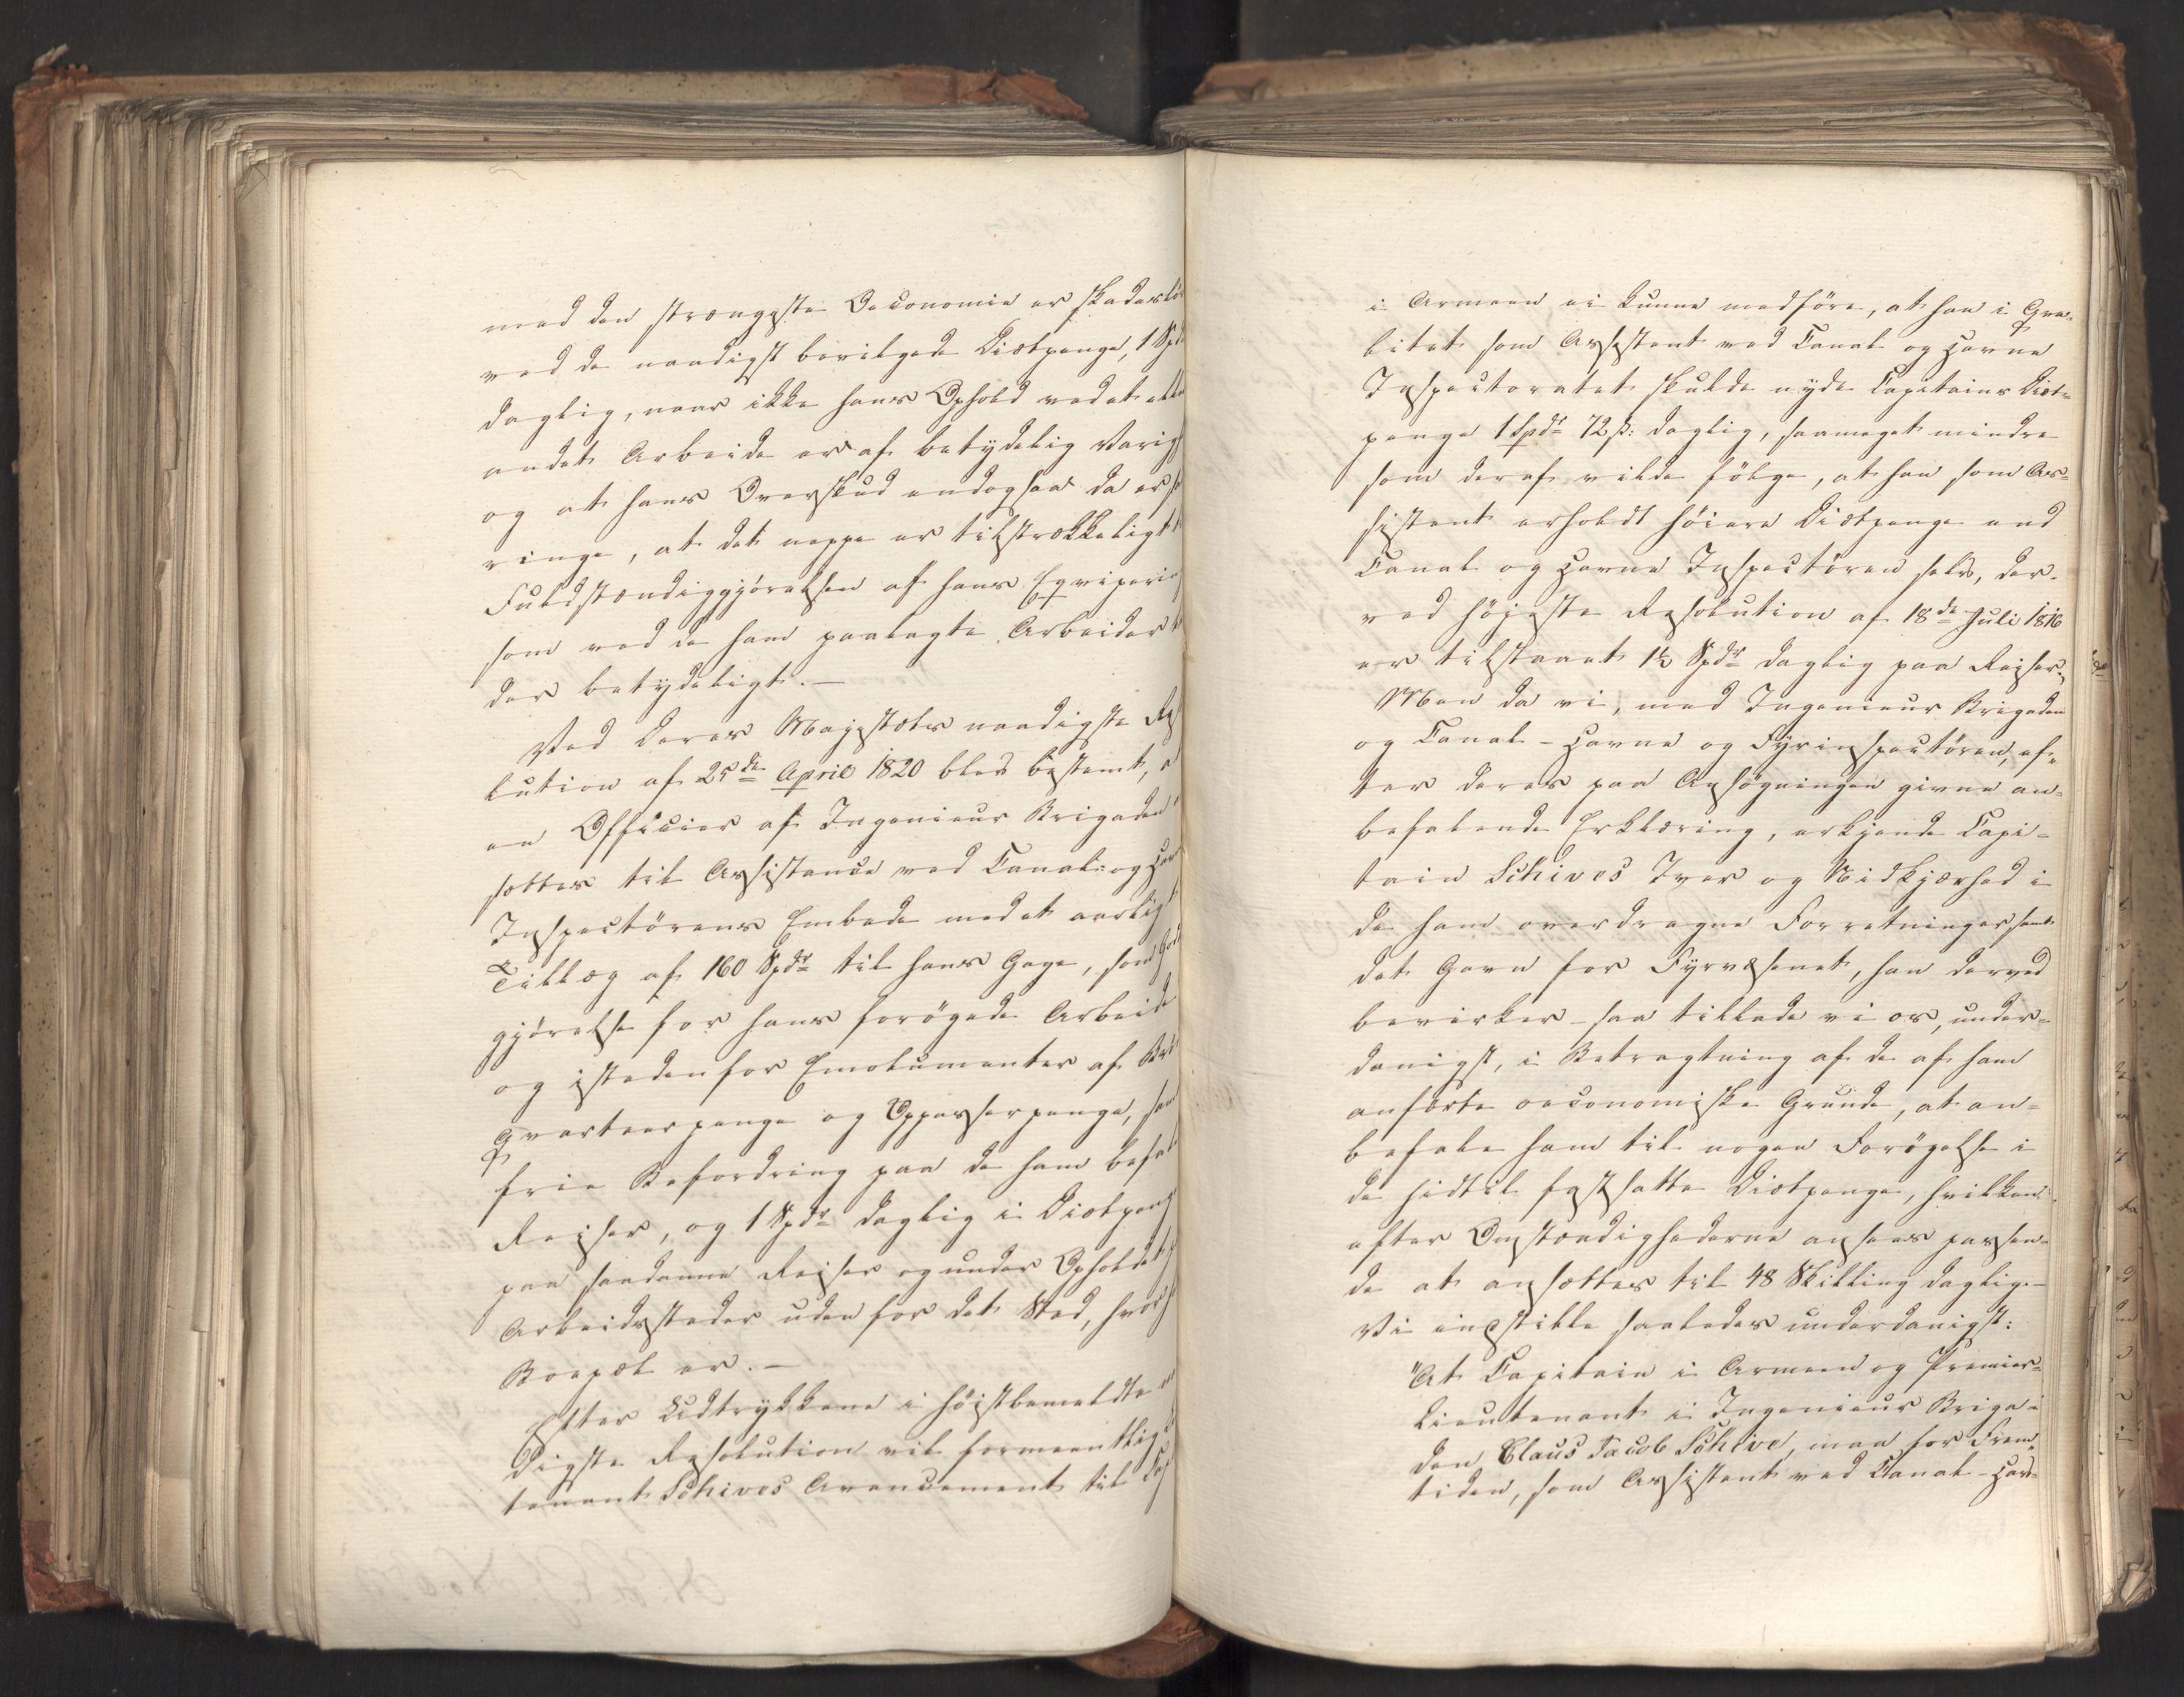 med den strengeste Oeconomie er skadeslös
ved de naadigst bevilgede Diætpenge, 1 Spd
daglig, naar ikke hans Ophold ved et eller
andet Arbeide er af betydelig Varig
og at hans Overskud endogsaa da er
ringe, at det neppe er tilstrækkeligt
Fuldstændiggjørelsen af hans Eqvipering
som ved de ham paalagte Arbeider
der betydeligt. –
Ved Deres Majestæts naadigste Reso
lution af 25de April 1820 blev bestemt, a
en Officier af Ingenieur Brigaden
sættes til Assistance ved Canal- og Hav
Inspectörens Embede med et aarligt
Tillæg af 160 Spdr til hans Gage, som God
gjörelse for hans forögede Arbeide
og istedenfor Emolumenter af Bröd
Qvarteerpenge og Oppasserpenge, samt
frie Befordring paa de ham befal
Reiser, og 1 Spdr daglig i Diætpenge
paa saadanne Reiser og under Opholdet
Arbeidssteder udenfor det Sted, hvor
Boepæl er. –
Efter Udtrykkene i höistbemeldte
digste Resolution vil formeentlig
tenant Schives Avancement til Cap
i Armeen ei kunne medföre, at han i Qva-
litet som Assistent ved Canal og Havne
Inspectoratet skulde nyde Capitains Diæt-
penge 1 Spdr 72 ß: daglig, saameget mindre
som deraf vilde fölge, at han som As-
sistent erholdt höiere Diætpenge end
Canal og Havne Inspectören selv, der
ved höjeste Resolution af 18de Juli 1816
er tilstaaet 1½ Spdr daglig paa Reiser,
Men da vi, med Ingenieur Brigaden
og Canal- Havne og Fyrinspectören, ef-
ter deres paa Ansögningen givne an-
befalende Erklæring, erkjende Capi-
tain Schives Iver og Nidkjærhed i
de ham overdragne Forretninger samt
det Gavn for Fyrvæsenet, han derved
bevirker – saa tillade vi os, under-
danigst, i Betragtning af de af ham
anförte oeconomiske Grunde, at an-
befale ham til nogen Forögelse i
de hidtil fastsatte Diætpenge, hvilken
efter Omstændighederne ansees passen-
de at ansættes til 48 Skilling daglig. –
Vi indstille saaledes underdanigst:
"At Capitain i Armeen og Premier-
Lieutenant i Ingenieur Briga-
den Claus Jacob Schive, maa for Frem-
tiden, som Assistent ved Canal- Hav-